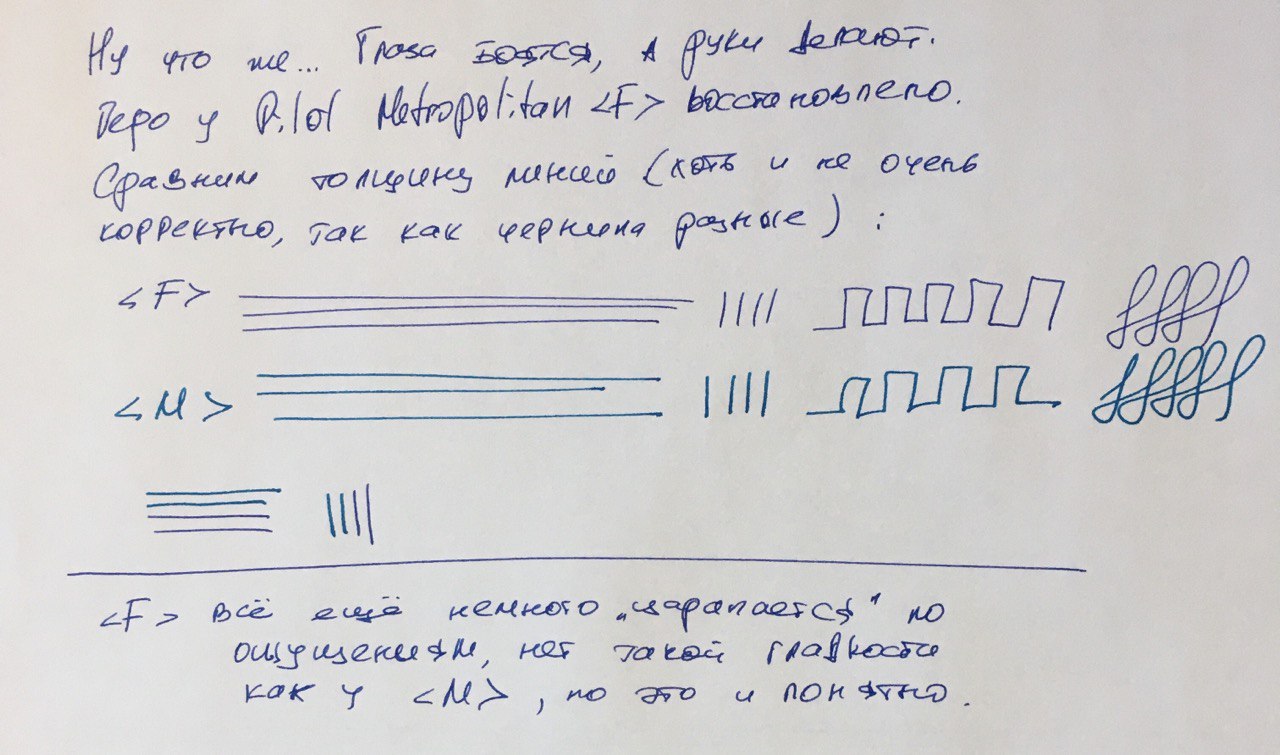 Ну что же... Глаза боятся, а руки делают.
Перо у Pilot Metropolitan <F> восстановлено.
Сравним толщину линий (хоть и не очень
корректно, так как чернила разные):
<F>
<M>
<F> всё ещё немного „царапается" по
ощущениям, нет такой гладкости
как у <M>, но это и понятно.